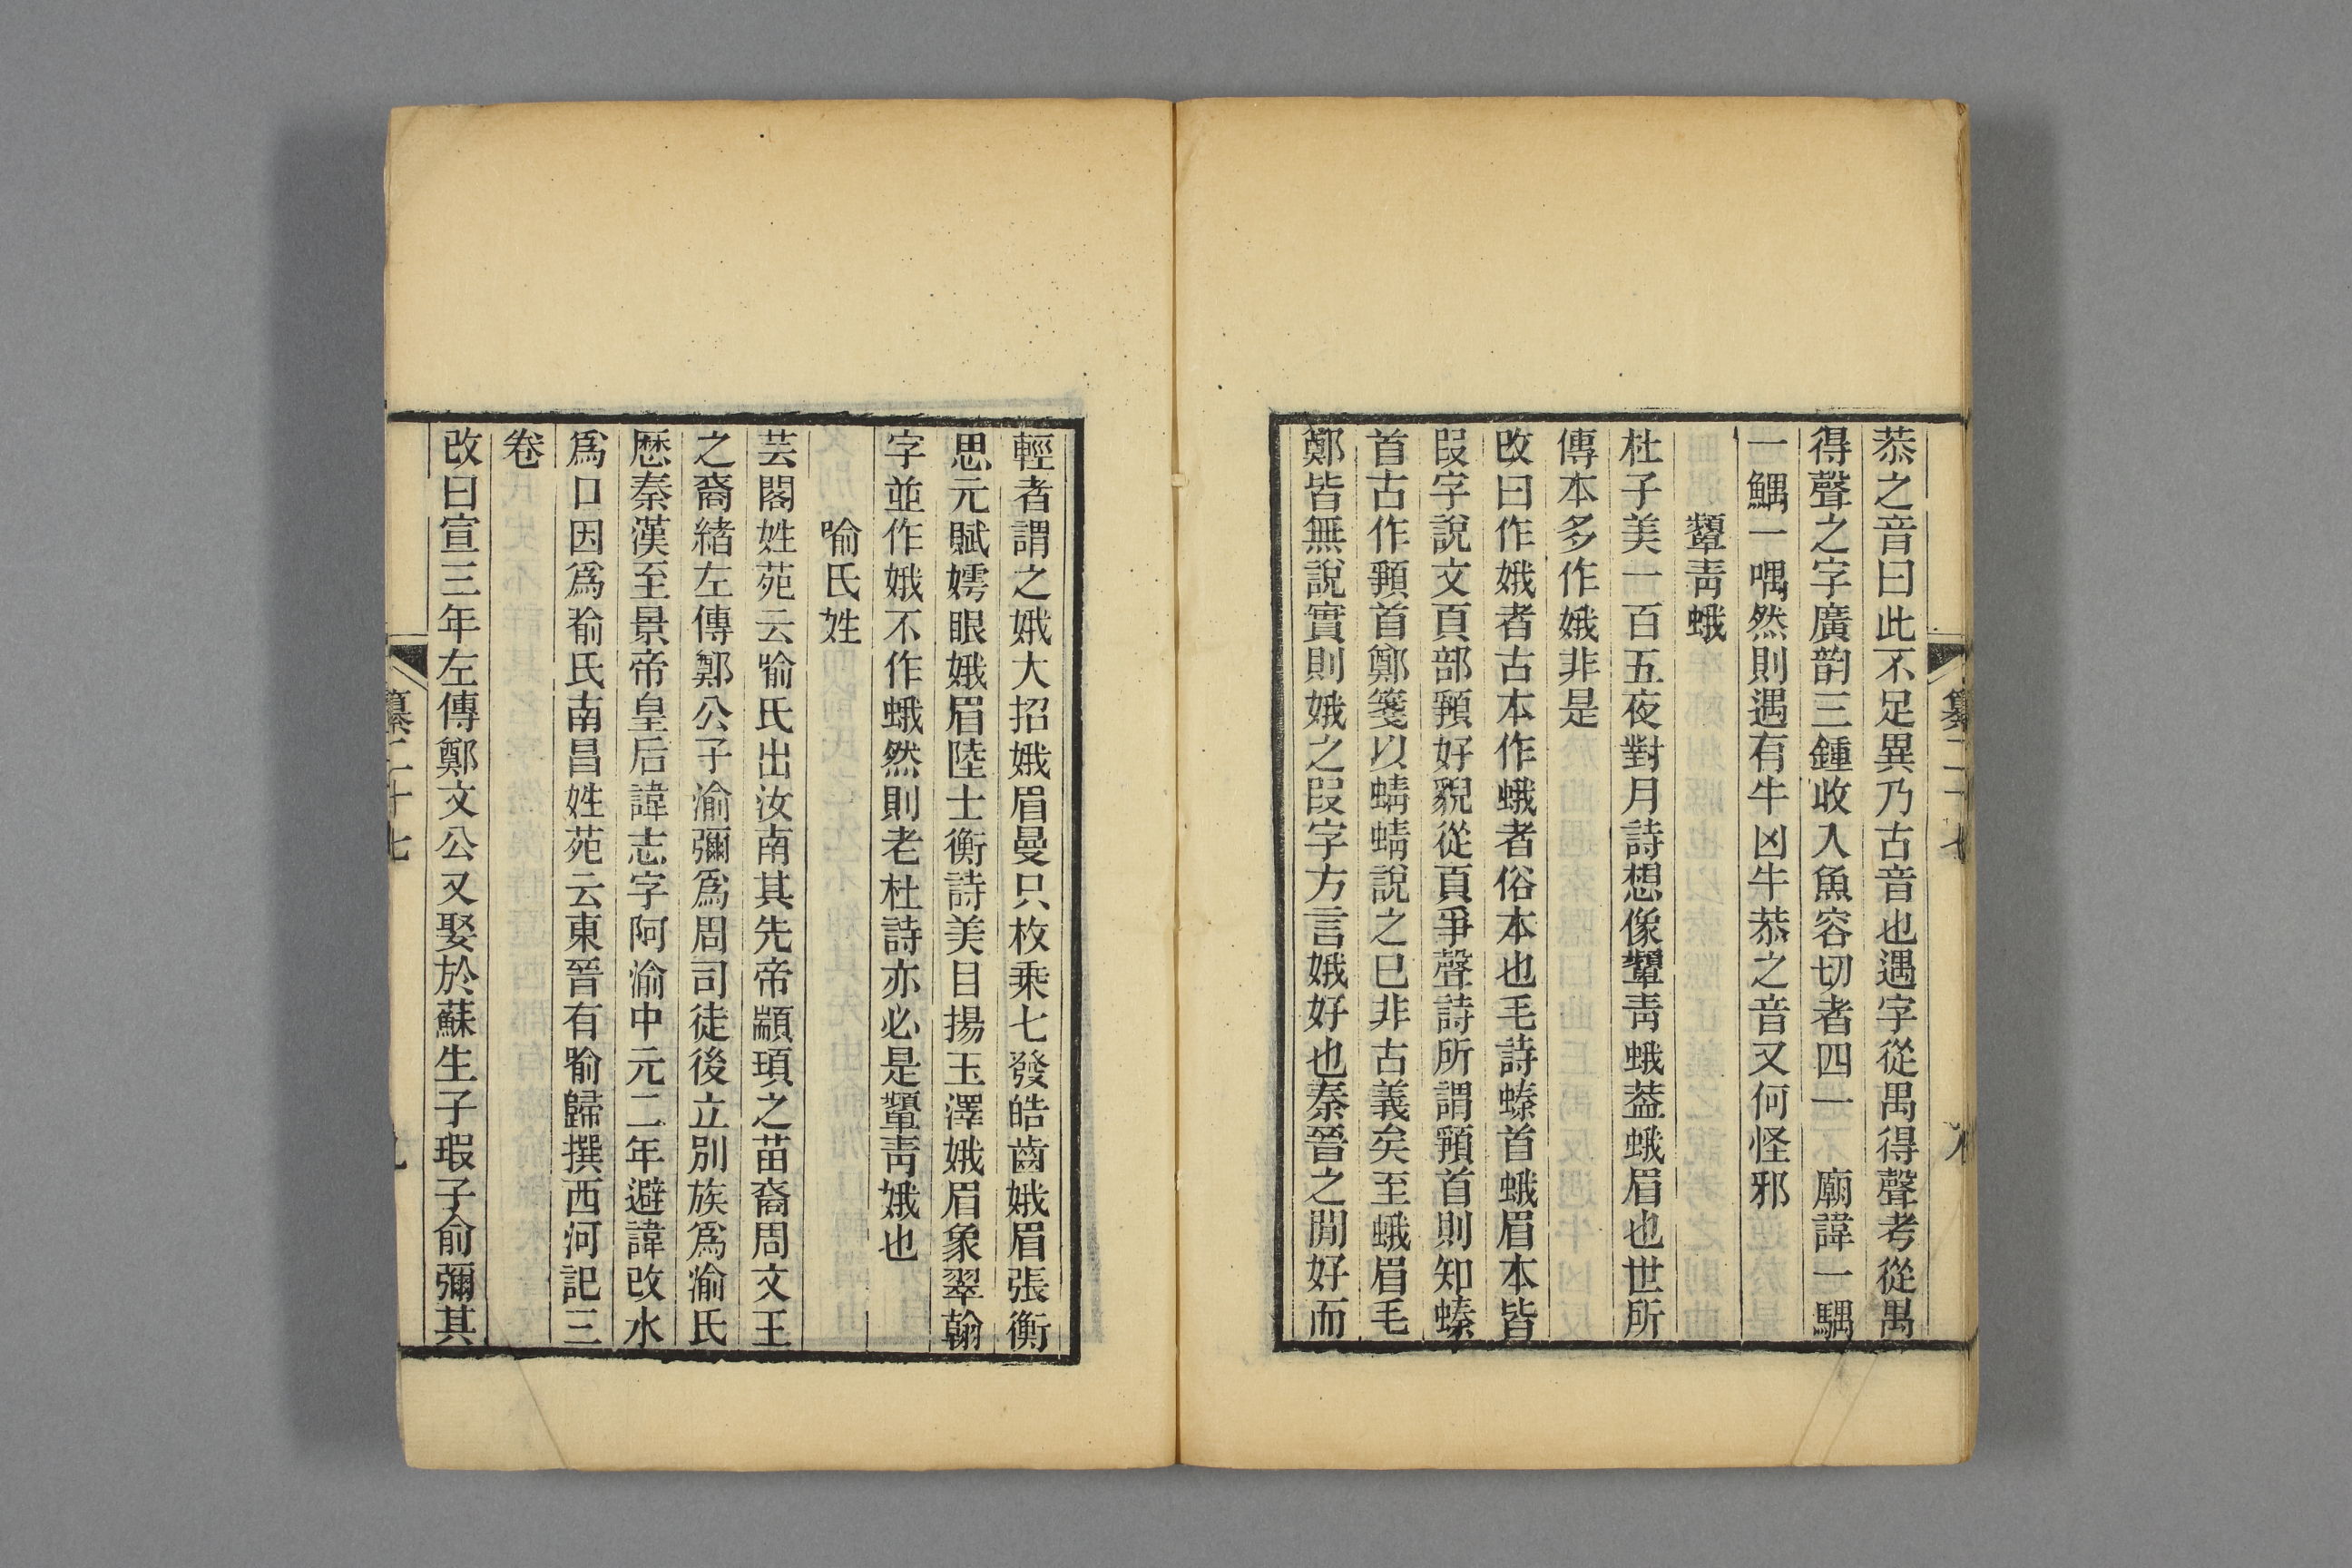 恭之音曰此不足異乃古音也遇字從禺得聲考從禺
得聲之字廣韵三鍾收入魚容切者四一 廟諱一騳
一鰅一喁然則遇有牛凶牛恭之音又何怪邪
顰靑蛾
杜子美一百五夜對月詩想像顰靑蛾葢蛾眉也世所
傳本多作娥非是
改曰作娥者古本作蛾者俗本也毛詩螓首蛾眉本皆
叚字說文頁部顊好貌從頁爭聲詩所謂顊首則知螓
首古作顊首鄭箋以蜻蜻說之已非古義矣至蛾眉毛
鄭皆無說實則娥之叚字方言娥好也秦晉之閒好而
輕者謂之娥大招娥眉曼只枚乗七發皓齒娥眉張衡
思元賦嫮眼娥眉陸士衡詩美目揚玉澤娥眉象翠翰
字並作娥不作蛾然則老杜詩亦必是顰靑娥也
喻氏姓
芸閣姓苑云喻氏出汝南其先帝顓頊之苗裔周文王
之裔緒左傳鄭公子渝彌爲周司徒後立別族爲渝氏
歷秦漢至景帝皇后諱志字阿渝中元二年避諱改水
爲口因爲喻氏南昌姓苑云東晉有喻歸撰西河記三
卷
改曰宣三年左傳鄭文公又娶於蘇生子瑕子俞彌其